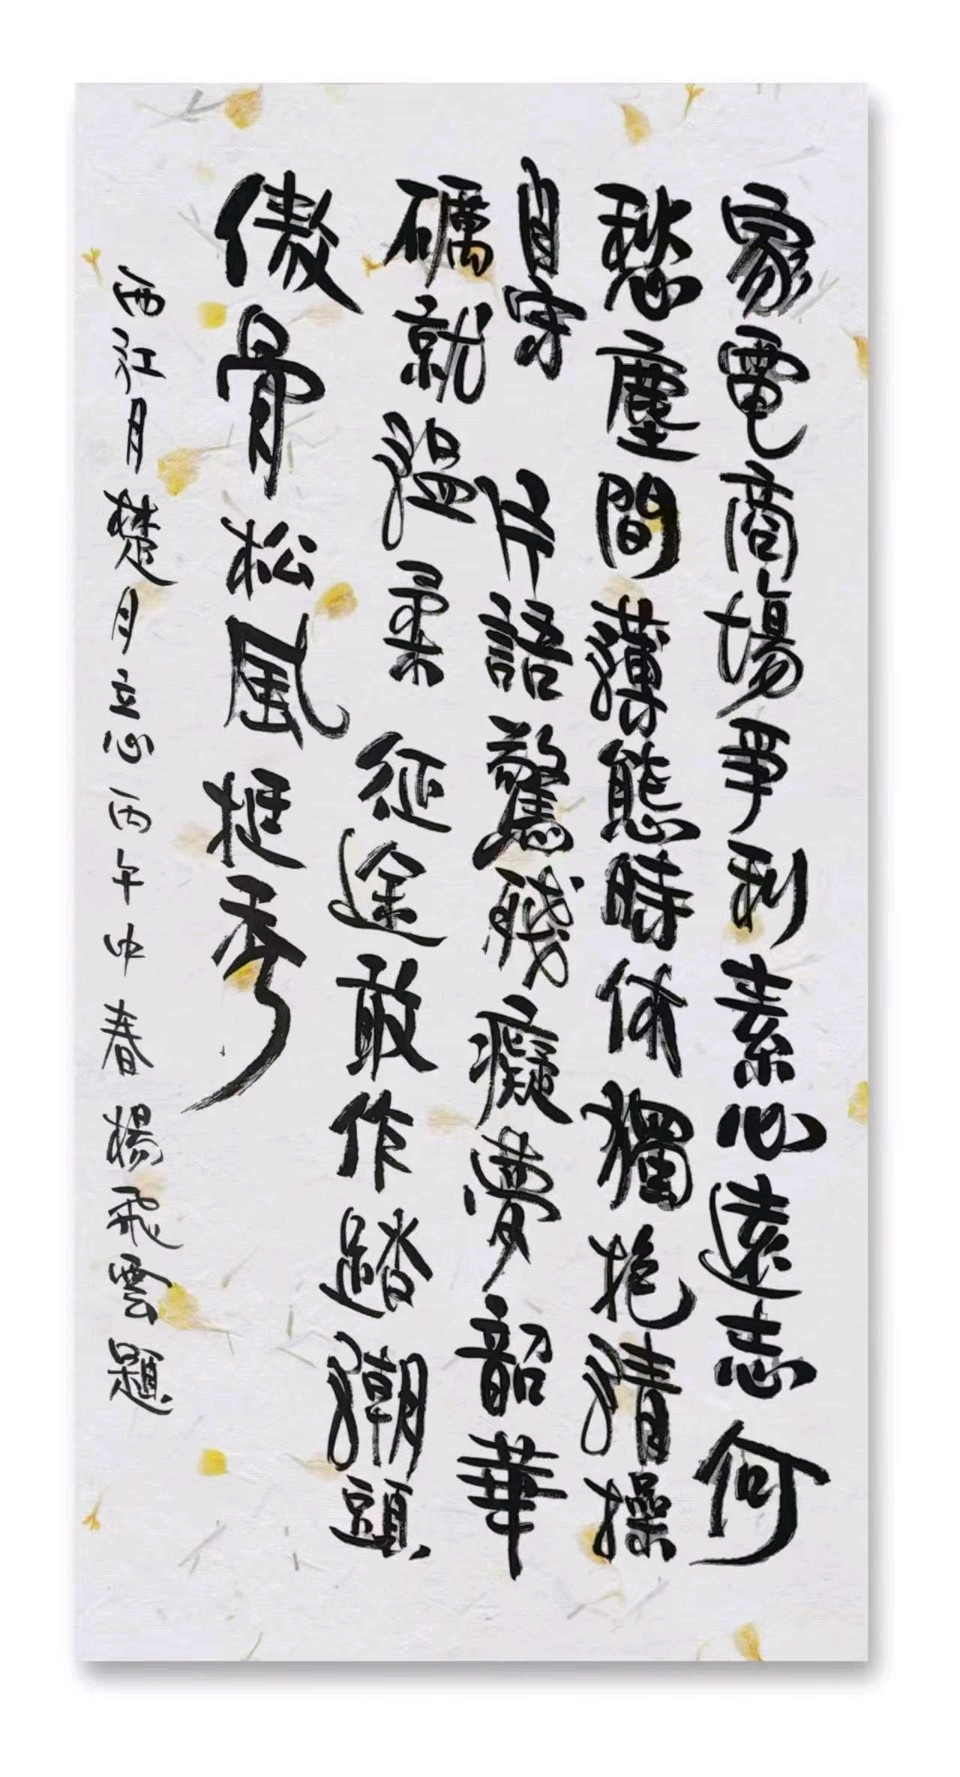 家電商場爭利素心遠志何
愁塵間薄態時休獨抱清操
自守　片語驚殘癡夢韶華
礪就溫柔　征途敢作踏潮頭
傲骨松風挺秀
西江月 楚月立心 丙午中春 楊飛雲題